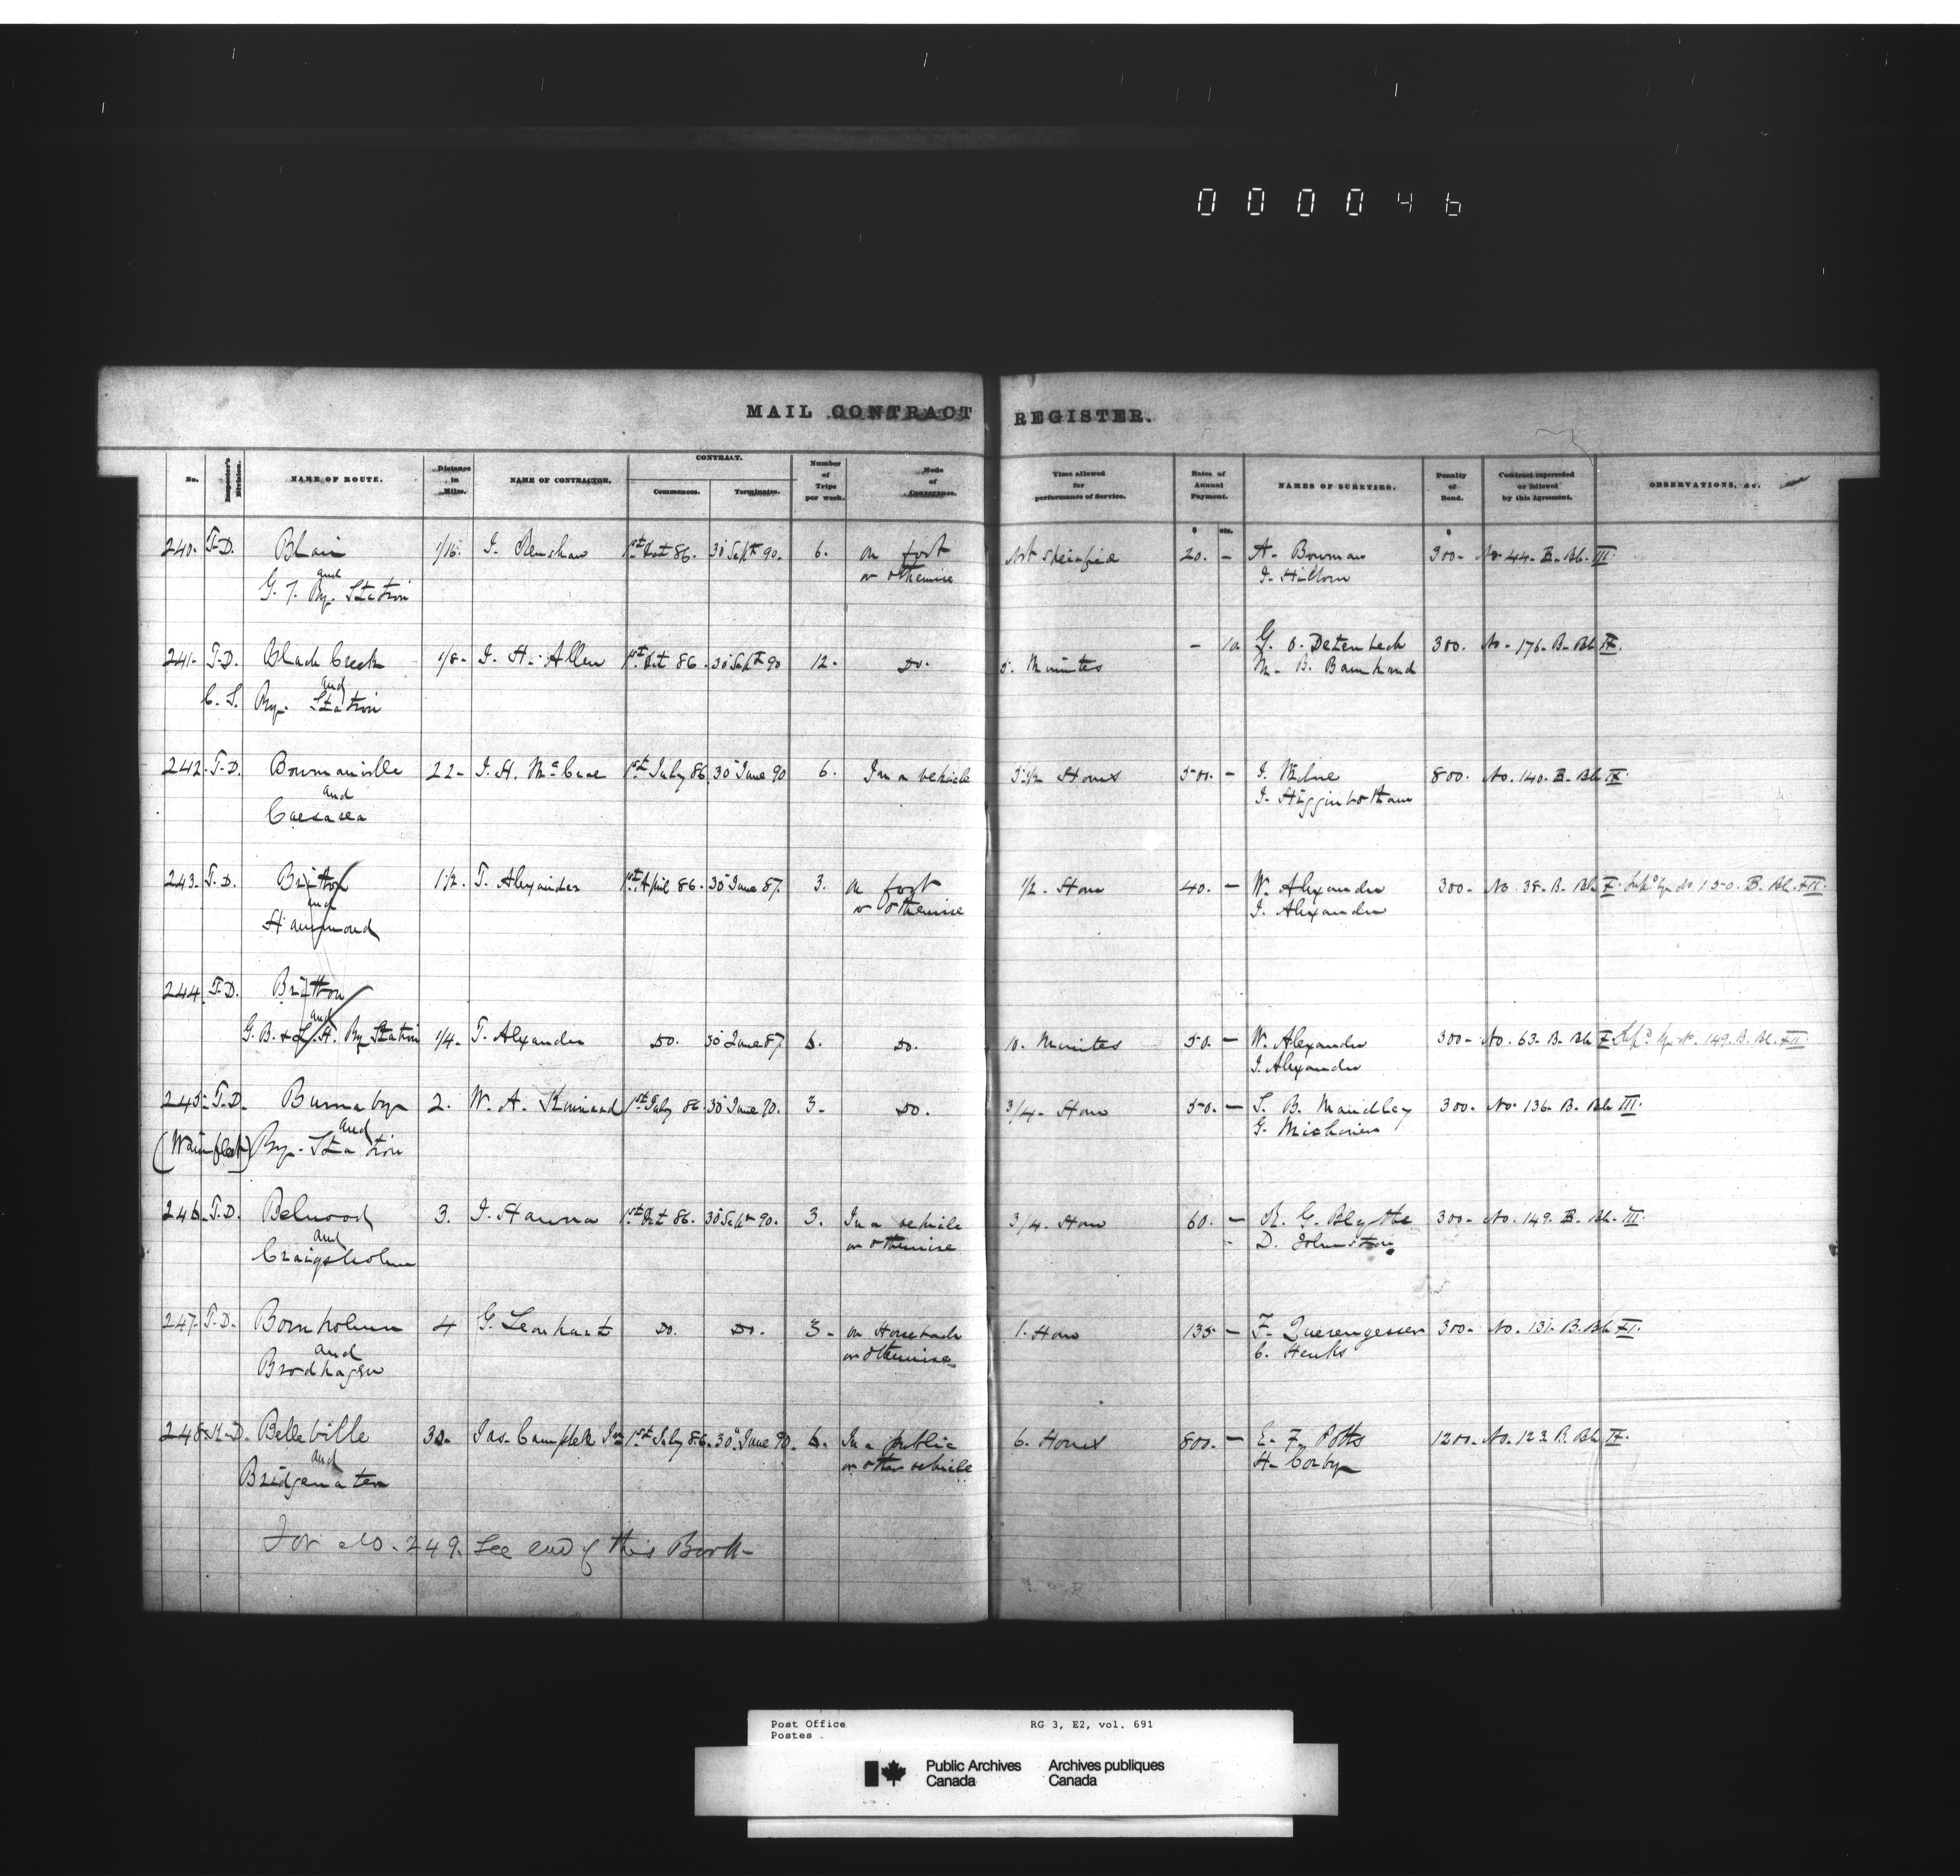 000046
MAIL CONTRACT REGISTER.
No. Inspector's Division. NAME OF ROUTE. Distance in Miles. NAME OF CONTRACTOR. CONTRACT. Commences. Terminates. Number of Trips per week. Mode of Conveyance. Time allowed for performance of Service. Rates of Annual Payment. NAMES OF SURETIES. Penalty of Bond. Contract superseded or followed by this Agreement. OBSERVATIONS, &c.
$ cts. $
240. T.D. Blair 1/16. J. Renshaw 1st Oct 86. 30 Sept 90. 6. on foot Not specified 20. - A. Bowman 300- No 44. B. Bk. III.
and or otherwise J. Hilborn
G. T. Ry. Station
241. T.D. Black Creek 1/8. J. H. Allen 1st Oct 86. 30 Sept 90 12. Do. 5. Minutes - 10 G. O. 300. No. 176. B. Bk IX.
and M. B. Barnhard
C. S. Ry. Station
242. T.D. Bowmanville 22- J. H. McCrae 1st July 86. 30 June 90 6. In a vehicle 5 1/2 Hours 500. - J. Milne 800. No. 140. B. Bk IX.
and J. Higginbotham
Caesarea
243. T.D. Britton 1 1/2. T. Alexander 1st April 86. 30 June 87. 3. on foot 1/2. Hour 40. - W. Alexander 300- No. 38. B. Bk X. Sup'd by No. 150. B. Bk. XII.
and or otherwise J. Alexander
Hammond
244. T.D. Britton
and
G. B. & L. H. Ry Station 1/4. T. Alexander Do. 30 June 87 6. Do. 10. Minutes 50. - W. Alexander 300- No. 63. B. Bk X. Sup'd by No. 149. B. Bk. XII.
J. Alexander
245. T.D. Burnaby 2. W. A. Kinnard 1st July 86. 30 June 90. 3. Do. 3/4. Hour 50. - S. B. 300. No. 136. B. Bk III.
and G. Michener
(Wainfleet) Ry. Station
246. T.D. Belwood 3. J. Hanna 1st Oct 86. 30 Sept 90. 3. In a vehicle 3/4. Hour 60. - R. G. Blythe 300- No. 149. B. Bk. III.
and or otherwise - D. Johnston
Craigsholme
247. T.D. Bornholm 4 G. Leonhart Do. Do. 3- on Horseback 1. Hour 135 - F. Querengesser 300- No. 131. B. Bk XI.
and or otherwise C. Henks
Brodhagen
248. K.D. Belleville 30. Jas. Campbell Jnr 1st July 86. 30" June 90. 6. In a public 6. Hours 800. - E. F. Potts 1200. No. 123. B. Bk IX.
and or other vehicle H. Corby
Bridgewater
For No. 249. See end of this Book-
Post Office RG 3, E2, vol. 691
Postes
Public Archives Archives publiques
Canada Canada